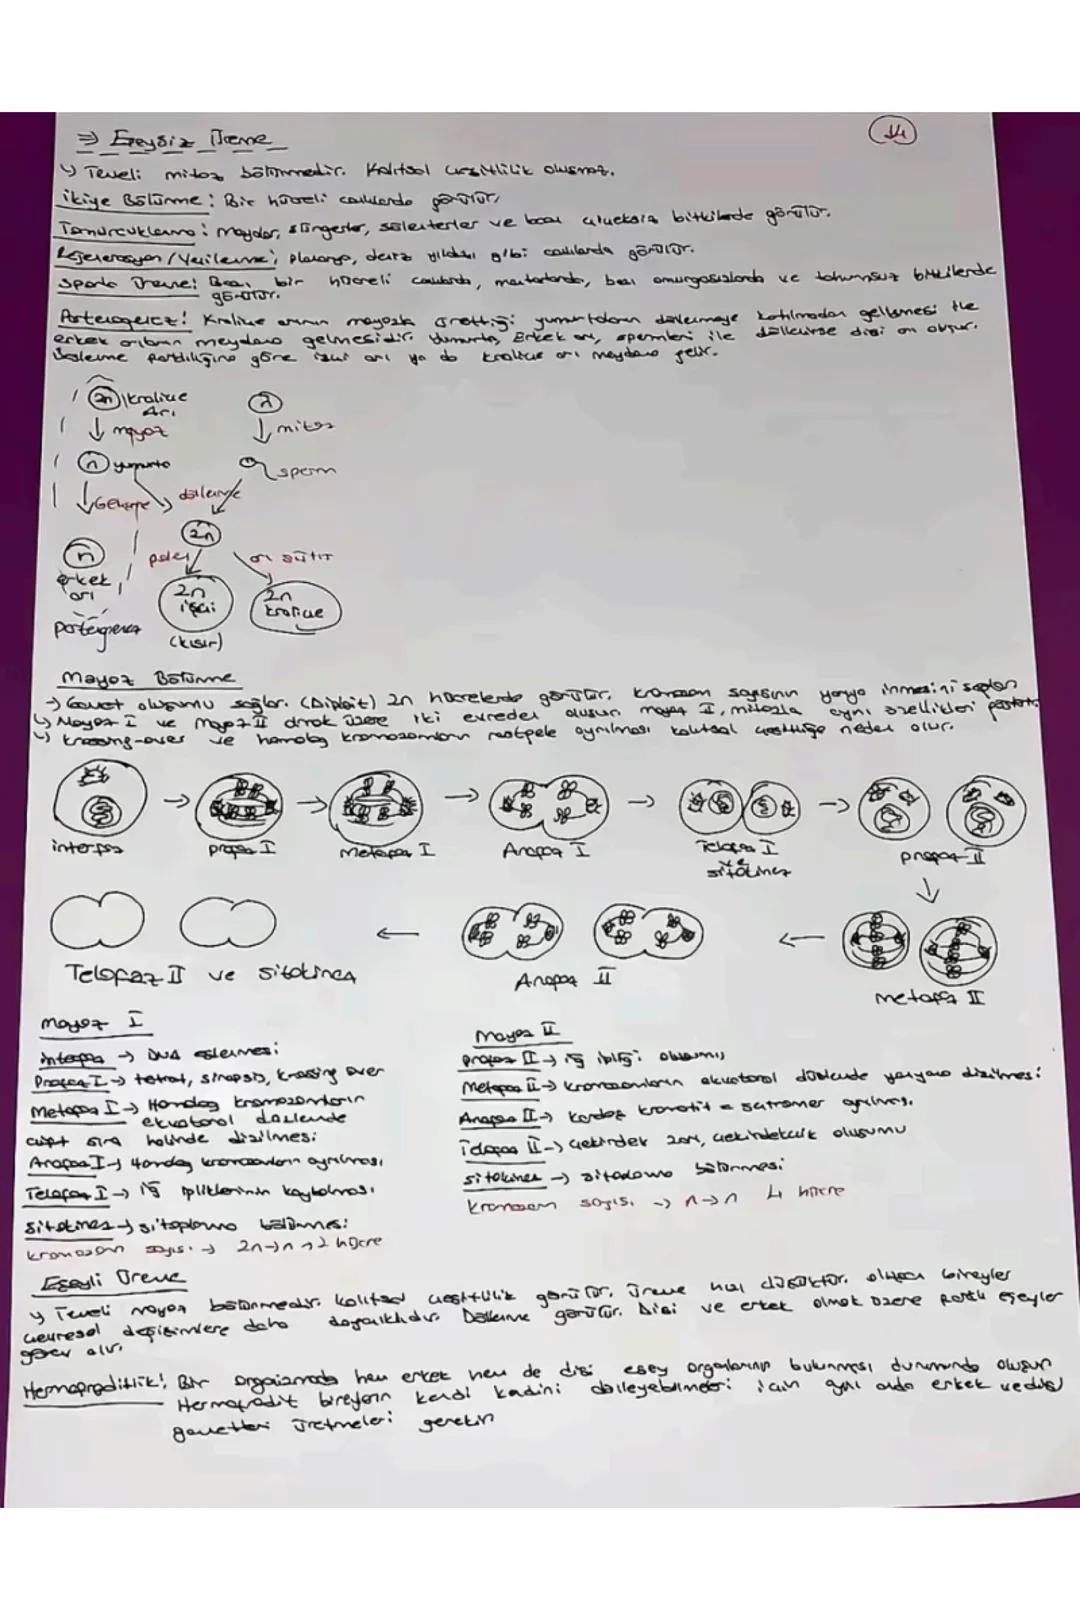 ⇒ Eşeysiz Üreme
14
↳ Temeli mitoz bölünmedir. Kalıtsal çeşitlilik oluşmaz.
İkiye Bölünme: Bir hücreli canlılarda görülür.
Tomurcuklanma: Mayalar, süngerler, sölenterler ve bazı çiçeksiz bitkilerde görülür.
Rejenerasyon/Yenilenme; planarya, deniz yıldızı gibi canlılarda görülür.
Sporla Üreme: Bazı bir hücreli canlılarda, mantarlarda, bazı omurgasızlarda ve tohumsuz bitkilerde
görülür.
Partenogenez: Kraliçe arının mayozla ürettiği yumurtaların döllenmeye katılmadan gelişmesi ile
erkek arıların meydana gelmesidir. Yumurta, Erkek arı, spermleri ile döllenirse dişi arı oluşur.
Beslenme farklılığına göre işçi arı ya da kraliçe arı meydana gelir.
2n kraliçe
Arı
n
↓ mayoz
↓ mitoz
n yumurta
sperm
↓ Gelişme
döllenme
2n
n
erkek
arı
polen
arı sütü
2n
işçi
2n
kraliçe
partenogenez
(kısır)
Mayoz Bölünme
→ Gamet oluşumu sağlar. (Diploit) 2n hücrelerde görülür. kromozom sayısının yarıya inmesini sağlar
↳ Mayoz I ve Mayoz II olmak üzere iki evreden oluşur. mayoz II, mitozla aynı özellikleri gösterir.
↳ krossing-over ve homolog kromozomların rastgele ayrılması kalıtsal çeşitliliğe neden olur.
interfaz
profaz I
Metafaz I
Anafaz I
Telofaz I
ve
sitokinez
profaz II
Telofaz II ve Sitokinez
Anafaz II
metafaz II
Mayoz I
interfaz → DNA eşlenmesi
Profaz I → tetrat, sinapsis, krossing over
Metafaz I → Homolog kromozomların
ekvatoral düzlemde
çift sıra halinde dizilmesi
Anafaz I → Homolog kromozomların ayrılması
Telofaz I → iğ ipliklerinin kaybolması
sitokinez → sitoplazma bölünmesi
kromozom sayısı → 2n → n → 2 hücre
Mayoz II
profaz II → iğ ipliği oluşumu
Metafaz II → kromozomların ekvatoral düzlemde yanyana dizilmesi
Anafaz II → kardeş kromatit = sentromer ayrılması
Telofaz II → çekirdek zarı, çekirdekçik oluşumu
sitokinez → sitoplazma bölünmesi
kromozom sayısı → n → n 4 hücre
Eşeyli Üreme
↳ Temeli mayoz bölünmedir. kalıtsal çeşitlilik görülür. üreme hızı düşüktür. oluşan bireyler
çevresel değişimlere daha dayanıklıdır. Döllenme görülür. Dişi ve erkek olmak üzere farklı eşeyler
görev alır.
Hermafroditlik: Bir organizmada hem erkek hem de dişi eşey organlarının bulunması durumunda oluşur
Hermafrodit bireylerin kendi kendini dölleyebilmesi için aynı anda erkek ve dişi
gametleri üretmeleri gerekir